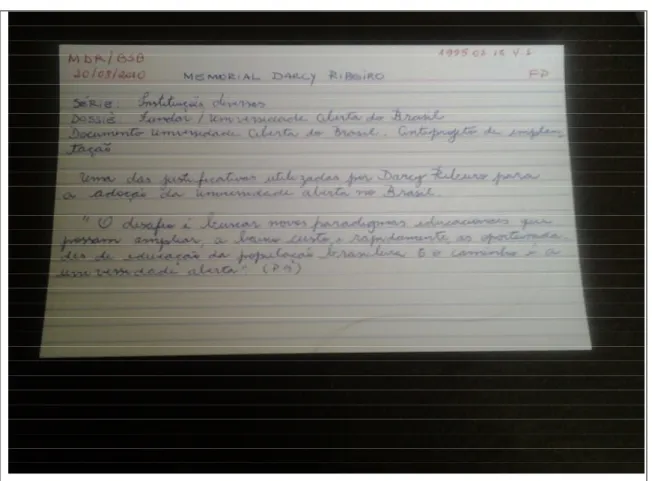 MDR/BSB 1995.02.15 V.1
20/08/2010 MEMORIAL DARCY RIBEIRO FD
SÉRIE: Instituições diversas
DOSSIÊ: Fundar / Universidade Aberta do Brasil
Documento Universidade Aberta do Brasil. Anteprojeto de implan-
tação
Uma das justificativas utilizadas por Darcy Ribeiro para
a adoção da universidade aberta no Brasil.
"O desafio é buscar novos paradigmas educacionais que
possam ampliar, a baixo custo e rapidamente as oportunida-
des de educação da população brasileira E o caminho é a
universidade aberta" (P 9)